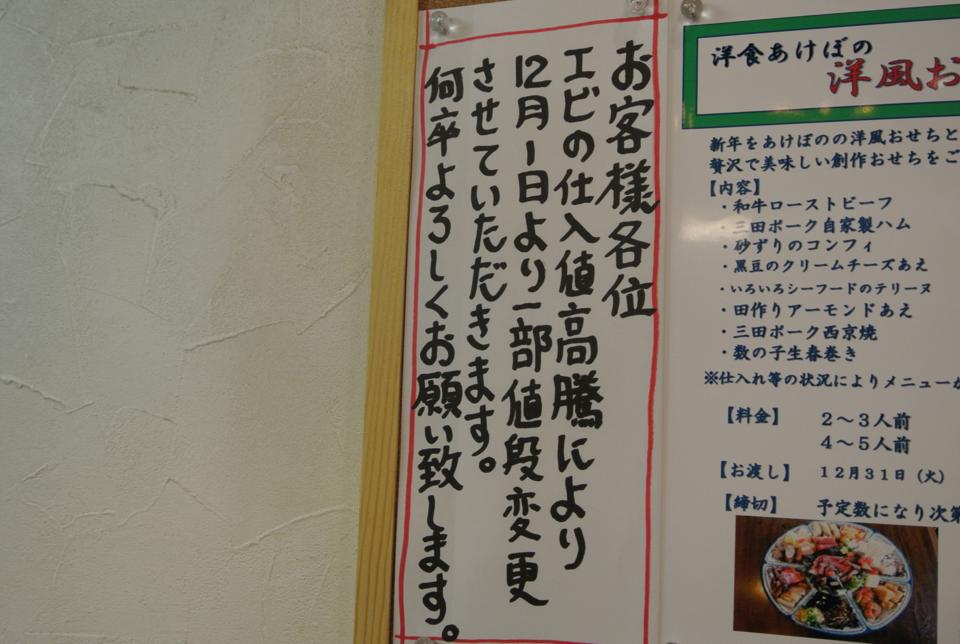 お客様各位
エビの仕入値高騰により
12月1日より一部値段変更
させていただきます。
何卒よろしくお願い致します。
洋食あけぼの
洋風お
新年をあけぼのの洋風おせちと
贅沢で美味しい創作おせちをご
【内容】
・和牛ローストビーフ
・三田ポーク自家製ハム
・砂ずりのコンフィ
・黒豆のクリームチーズあえ
・いろいろシーフードのテリーヌ
・田作りアーモンドあえ
・三田ポーク西京焼
・数の子生春巻き
※仕入れ等の状況によりメニューが
【料金】 2～3人前
4～5人前
【お渡し】 12月31日（火）
【締切】 予定数になり次第